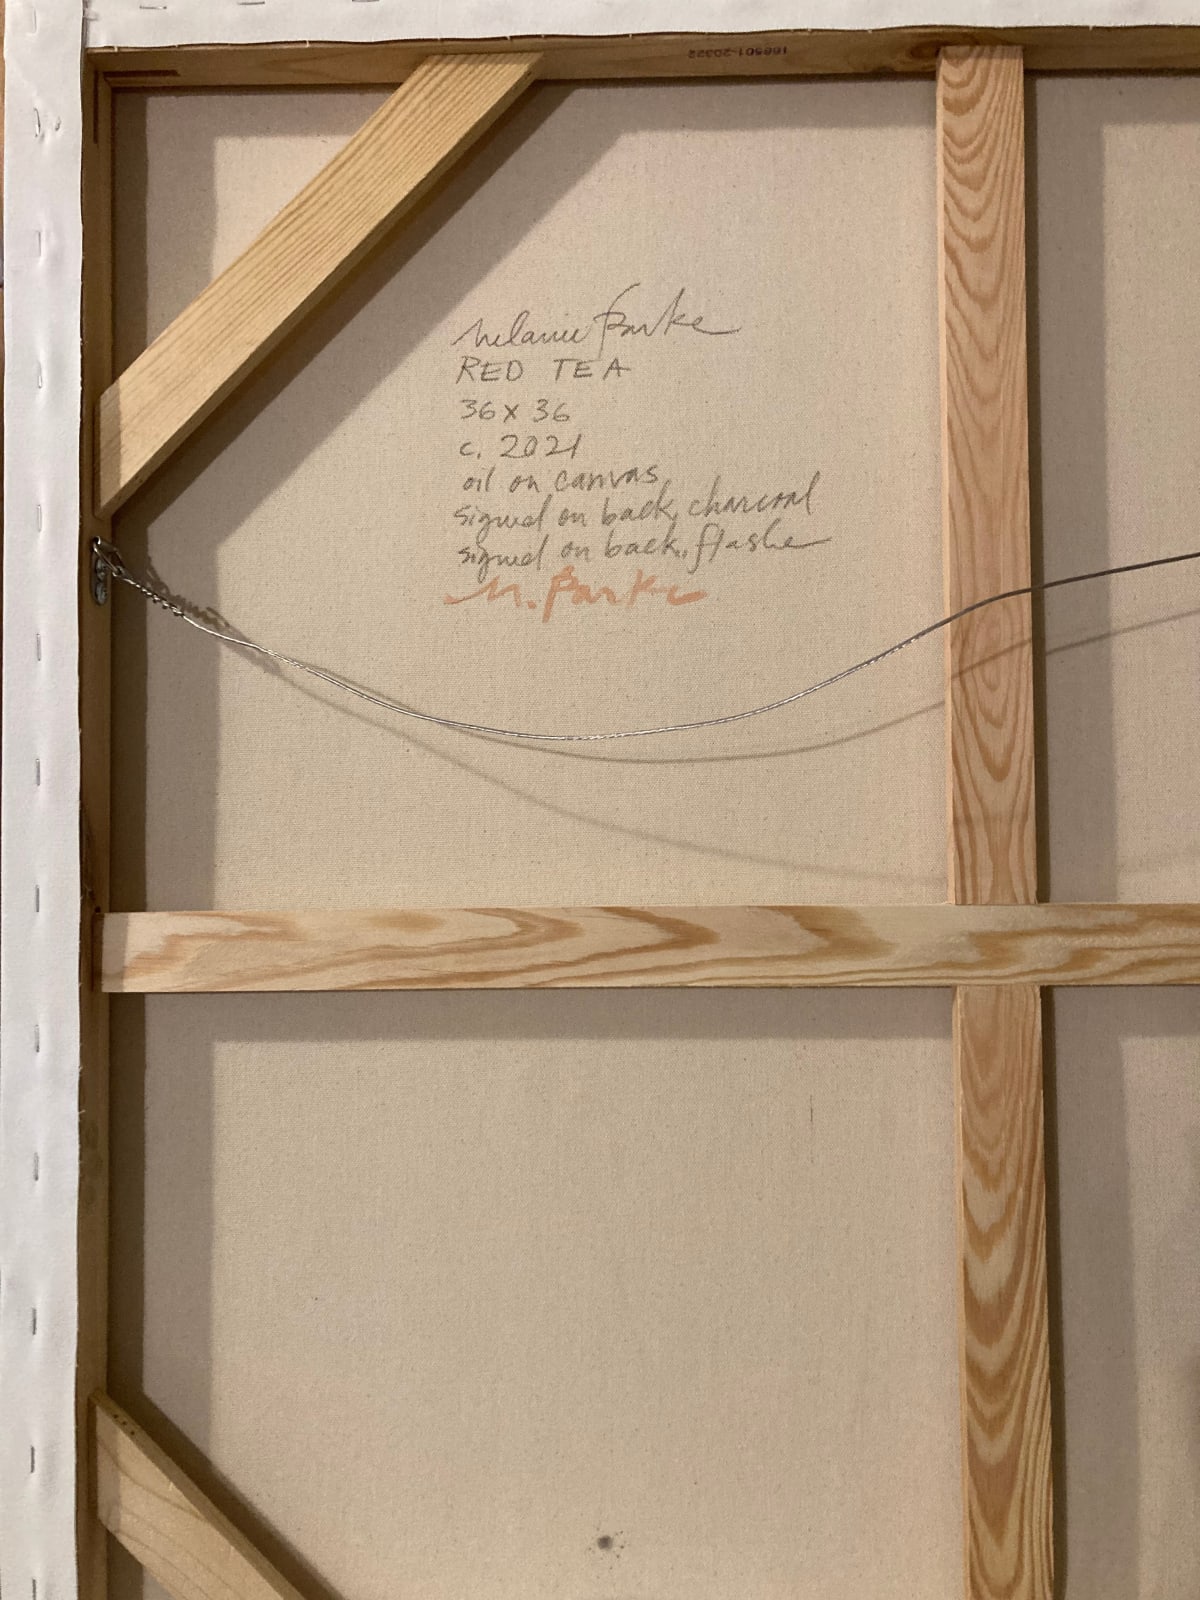 166501-20322
Melanie Parke
RED TEA
36 x 36
c. 2021
oil on canvas
signed on back, charcoal
signed on back, flashe
M. Parke